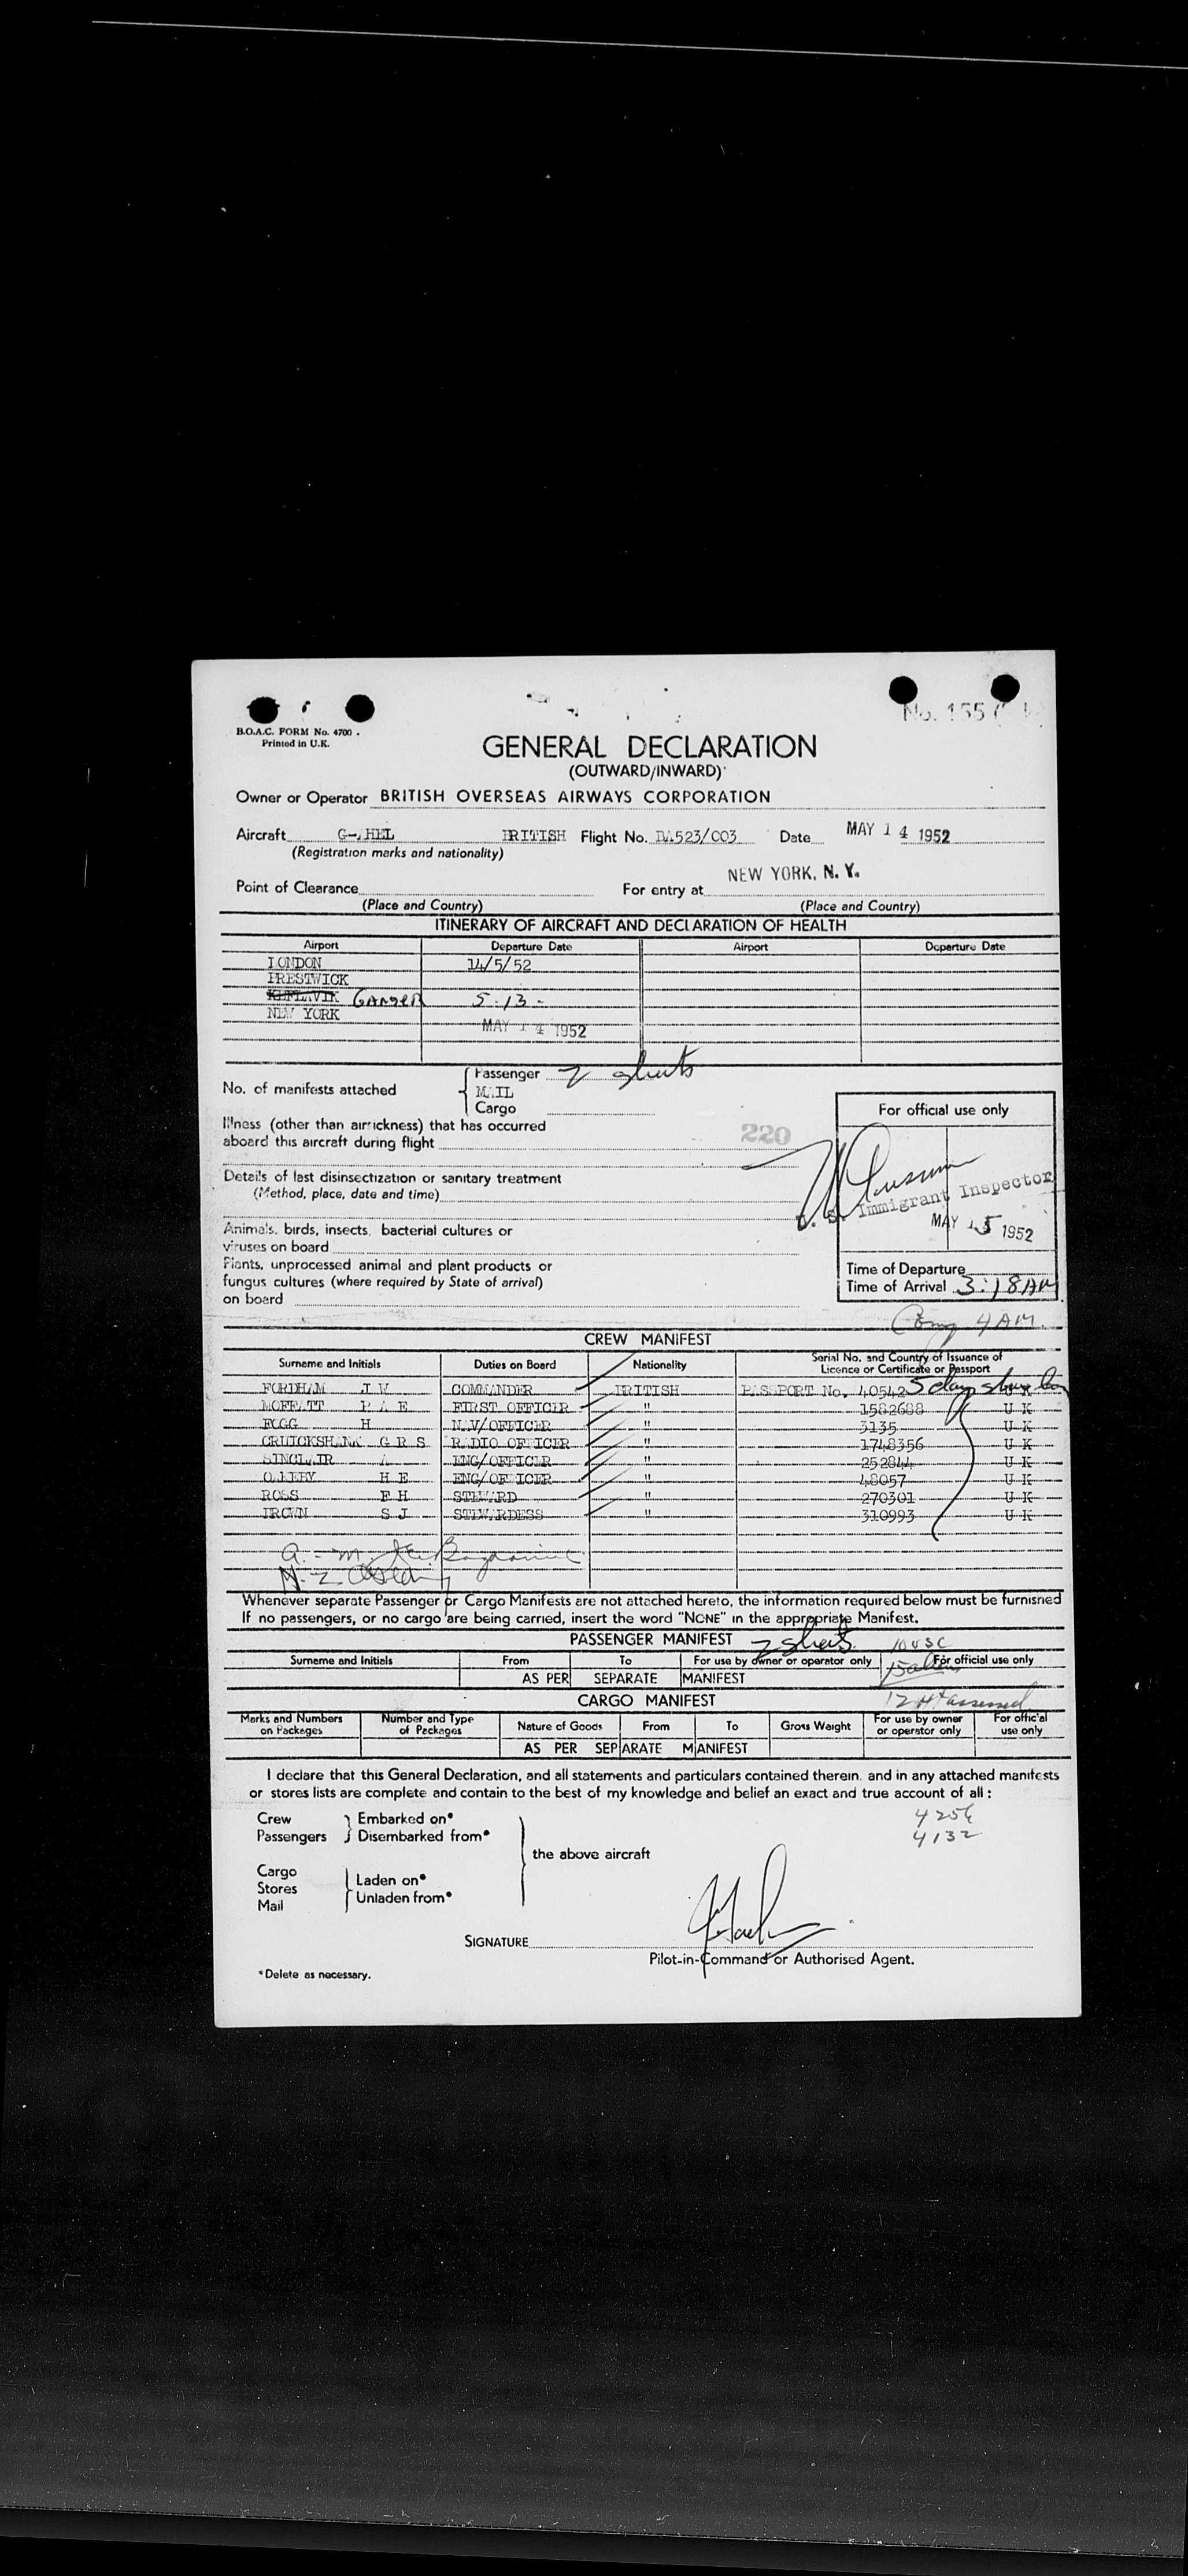 No. 155
B.O.A.C. FORM No. 4700
Printed in U.K.
GENERAL DECLARATION
(OUTWARD/INWARD)*
Owner or Operator BRITISH OVERSEAS AIRWAYS CORPORATION
Aircraft G-AHEL BRITISH Flight No. BA523/003 Date MAY 14 1952
(Registration marks and nationality)
NEW YORK, N. Y.
Point of Clearance For entry at
(Place and Country) (Place and Country)
ITINERARY OF AIRCRAFT AND DECLARATION OF HEALTH
Airport Departure Date Airport Departure Date
LONDON 14/5/52
PRESTWICK
KEFLAVIK GANDER 5-13-
NEW YORK
MAY 14 1952
No. of manifests attached
Passenger 2 sheets
MAIL
Cargo
For official use only
Illness (other than airsickness) that has occurred
aboard this aircraft during flight
220
Details of last disinsectization or sanitary treatment
(Method, place, date and time)
U. S. Immigrant Inspector
MAY 15 1952
Animals, birds, insects, bacterial cultures or
viruses on board
Plants, unprocessed animal and plant products or
fungus cultures (where required by State of arrival)
on board
Time of Departure
Time of Arrival 3:18 AM
4 AM
CREW MANIFEST
Surname and Initials Duties on Board Nationality Serial No. and Country of Issuance of Licence or Certificate or Passport
FORDHAM J V COMMANDER BRITISH PASSPORT No. 40542 5 days U K
MOFFATT P A E FIRST OFFICER " 1582688 U K
FOGG H NAV/OFFICER " 3135 U K
CRUICKSHANK G R S RADIO OFFICER " 1748356 U K
SINCLAIR A ENG/OFFICER " 252844 U K
OLLERY H E ENG/OFFICER " 48057 U K
ROSS E H STEWARD " 270301 U K
BROWN S J STEWARDESS " 310993 U K
Whenever separate Passenger or Cargo Manifests are not attached hereto, the information required below must be furnished
If no passengers, or no cargo are being carried, insert the word "NONE" in the appropriate Manifest.
PASSENGER MANIFEST 2 sheets 10 USC
Surname and Initials From To For use by owner or operator only For official use only
15 aliens
AS PER SEPARATE MANIFEST
CARGO MANIFEST 12 HT assessed
Marks and Numbers on Packages Number and Type of Packages Nature of Goods From To Gross Weight For use by owner or operator only For official use only
AS PER SEPARATE MANIFEST
I declare that this General Declaration, and all statements and particulars contained therein, and in any attached manifests
or stores lists are complete and contain to the best of my knowledge and belief an exact and true account of all :
Crew Embarked on*
Passengers Disembarked from*
4132
the above aircraft
Cargo
Stores
Mail
Laden on*
Unladen from*
SIGNATURE
Pilot-in-Command or Authorised Agent.
*Delete as necessary.